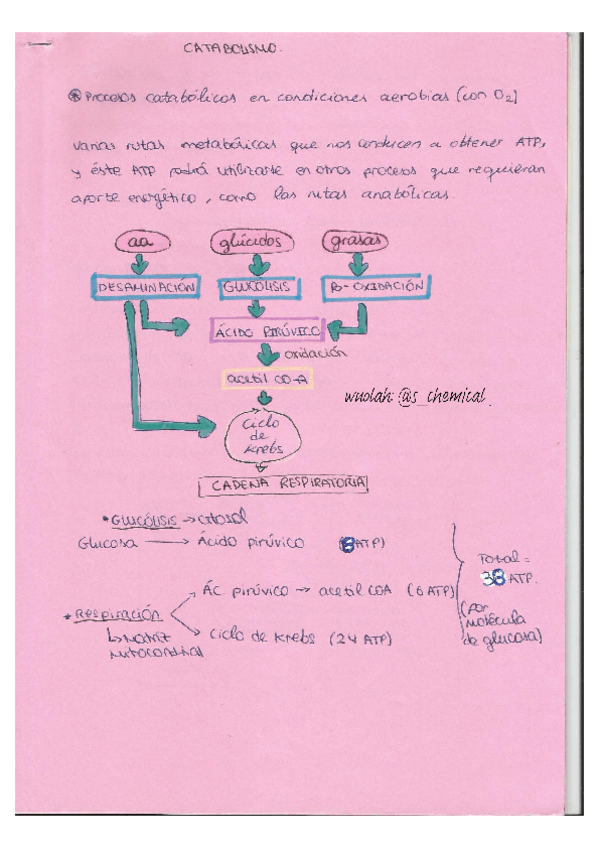 CATABOLISMO.
⊛ Procesos catabólicos en condiciones aerobias (con O2)
varias rutas metabólicas que nos conducen a obtener ATP,
y éste ATP podrá utilizarse en otros procesos que requieran
aporte energético, como las rutas anabólicas.
aa glúcidos grasas
DESAMINACIÓN GLUCÓLISIS B-OXIDACIÓN
ÁCIDO PIRÚVICO
oxidación
acetil CO-A
wuolah: @s_chemical_
Ciclo
de
Krebs
CADENA RESPIRATORIA
• GLUCÓLISIS → citosol
Glucosa → Ácido pirúvico (8 ATP)
Ác. pirúvico → acetil COA (6 ATP)
• RESPIRACIÓN
↳ Matriz
mitocondrial
Ciclo de Krebs (24 ATP)
Total =
38 ATP.
(por
molécula
de glucosa)